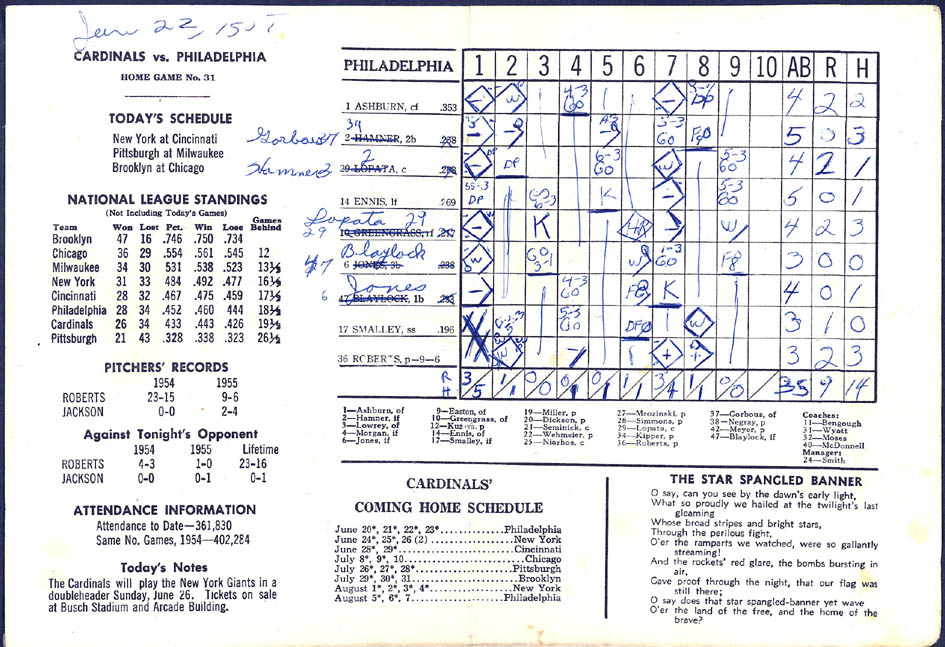 June 22, 195
CARDINALS vs. PHILADELPHIA
HOME GAME No. 31
TODAY'S SCHEDULE
New York at Cincinnati
Pittsburgh at Milwaukee
Brooklyn at Chicago
NATIONAL LEAGUE STANDINGS
(Not Including Today's Games)
Team Won Lost Pct. Win Lose Games Behind
Brooklyn 47 16 .746 .750 .734
Chicago 36 29 .554 .561 .545 12
Milwaukee 34 30 .531 .538 .523 13½
New York 31 33 .484 .492 .477 16½
Cincinnati 28 32 .467 .475 .459 17½
Philadelphia 28 34 .452 .460 .444 18½
Cardinals 26 34 .433 .443 .426 19½
Pittsburgh 21 43 .328 .338 .323 26½
PITCHERS' RECORDS
1954 1955
ROBERTS 23-15 9-6
JACKSON 0-0 2-4
Against Tonight's Opponent
1954 1955 Lifetime
ROBERTS 4-3 1-0 23-16
JACKSON 0-0 0-1 0-1
ATTENDANCE INFORMATION
Attendance to Date—361,830
Same No. Games, 1954—402,284
Today's Notes
The Cardinals will play the New York Giants in a
doubleheader Sunday, June 26. Tickets on sale
at Busch Stadium and Arcade Building.
PHILADELPHIA 1 2 3 4 5 6 7 8 9 10 AB R H
1 ASHBURN, cf .353 W 4-3 60 DP 4 2 2
Gorbous 37
2 HAMNER, 2b 5-3 60 F8 5 0 3
Hamner 2
39 LOPATA, c DP 6-3 60 5-3 60 4 2 1
14 ENNIS, lf .269 DP K 5-3 60 5 0 1
Lopata 29
29 10 GREENGRASS, rf K W 4 2 3
Blaylock
47 6 JONES, 3b .238 W 3-1 1-3 60 F8 3 0 0
Jones
6 47 BLAYLOCK, 1b 4-3 60 F8 K 4 0 1
17 SMALLEY, ss .196 5-3 60 W 3 1 0
36 ROBERTS, p—9—6 W 3 2 3
R H 3/5 1/1 0/0 0/1 0/1 1/1 3/4 1/1 0/0 35 9 14
1—Ashburn, of
2—Hamner, if
3—Lowrey, of
4—Morgan, if
6—Jones, if
9—Easton, of
10—Greengrass, of
12—Kuzava, p
14—Ennis, of
17—Smalley, if
19—Miller, p
20—Dickson, p
21—Seminick, c
22—Wehmeier, p
25—Niarhos, c
27—Mrozinski, p
28—Simmons, p
29—Lopata, c
34—Kipper, p
36—Roberts, p
37—Gorbous, of
38—Negray, p
42—Meyer, p
47—Blaylock, if
Coaches:
11—Bengough
31—Wyatt
32—Moses
40—McDonnell
Manager:
24—Smith
CARDINALS'
COMING HOME SCHEDULE
June 20*, 21*, 22*, 23*...............Philadelphia
June 24*, 25*, 26 (2)...............New York
June 28*, 29*...............Cincinnati
July 8*, 9*, 10...............Chicago
July 26*, 27*, 28*...............Pittsburgh
July 29*, 30*, 31...............Brooklyn
August 1*, 2*, 3*, 4*...............New York
August 5*, 6*, 7...............Philadelphia
THE STAR SPANGLED BANNER
O say, can you see by the dawn's early light,
What so proudly we hailed at the twilight's last
gleaming
Whose broad stripes and bright stars,
Through the perilous fight,
O'er the ramparts we watched, were so gallantly
streaming!
And the rockets' red glare, the bombs bursting in
air,
Gave proof through the night, that our flag was
still there;
O say does that star spangled-banner yet wave
O'er the land of the free, and the home of the
brave?